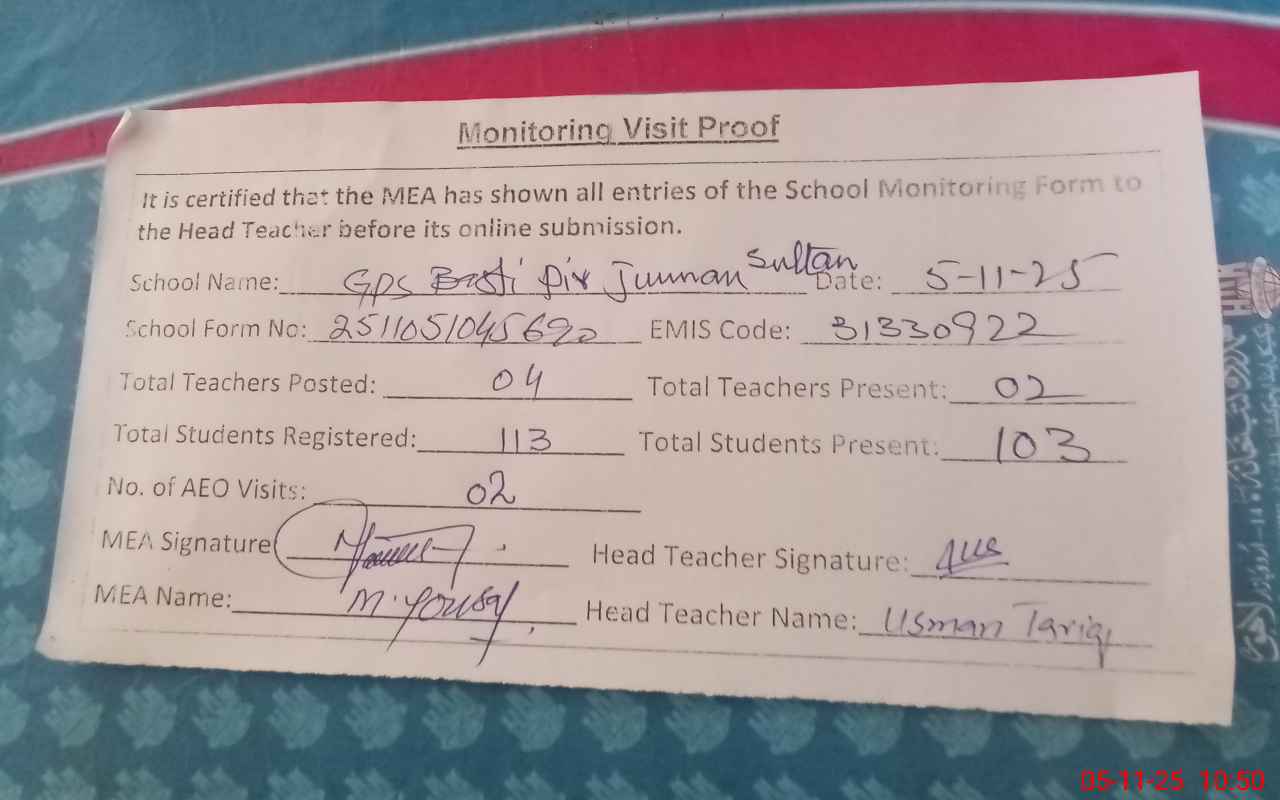 Monitoring Visit Proof
It is certified that the MEA has shown all entries of the School Monitoring Form to
the Head Teacher before its online submission.
School Name: GPS Basti Pir Jumman Sultan Date: 5-11-25
School Form No: 2511051045690 EMIS Code: 31330922
Total Teachers Posted: 04 Total Teachers Present: 02
Total Students Registered: 113 Total Students Present: 103
No. of AEO Visits: 02
MEA Signature Head Teacher Signature:
MEA Name: M. Yousaf Head Teacher Name: Usman Tariq
05-11-25 10:50